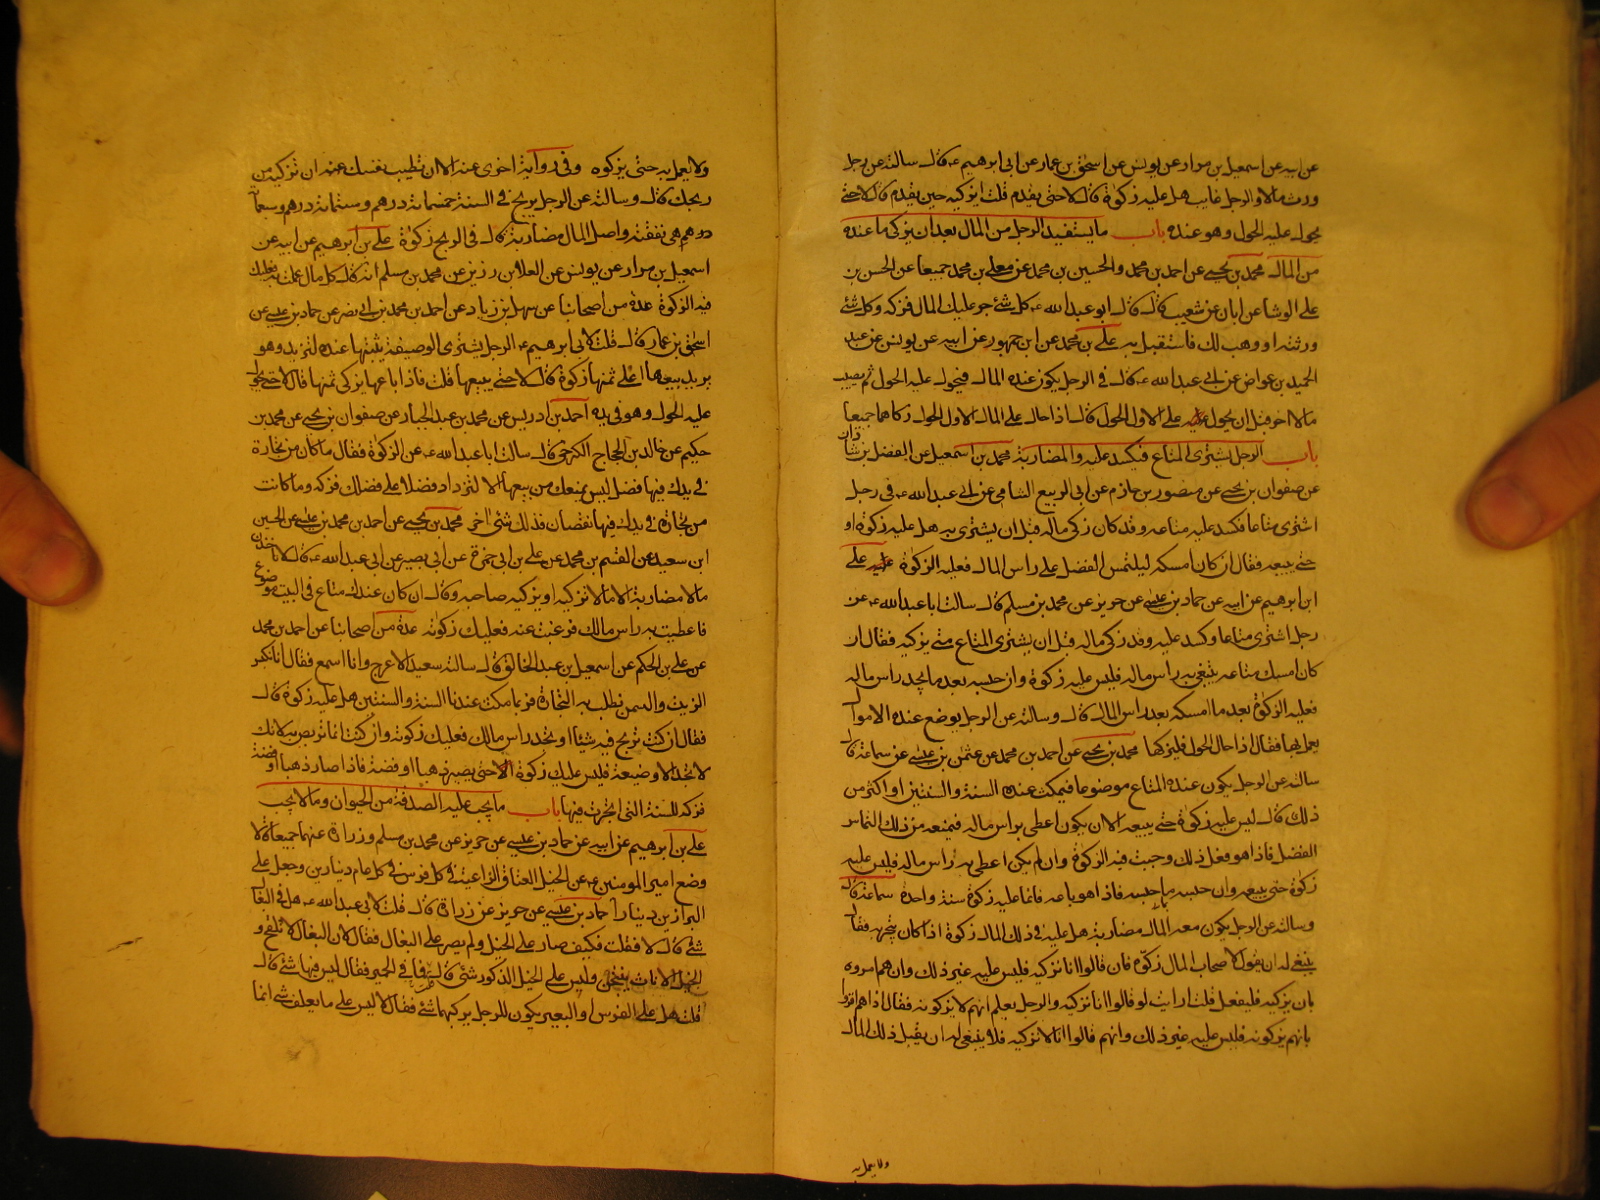 عن ابيه عن اسمعيل بن مرار عن يونس عن اسحق بن عمار عن ابى ابرهيم ع قال سالته عن رجل
ورث مالا والرجل غايب هل عليه زكوة قال لا حتى يقدم قلت ايزكيه حين يقدم قال لا حتى
يحول عليه الحول وهو عنده باب ما يستفيد الرجل من المال بعد ان يزكى ما عنده
من المال محمد بن يحيى عن احمد بن محمد والحسين بن محمد عن معلى بن محمد جميعا عن الحسن بن
على الوشا عن ابان عن شعيب قال قال ابو عبد الله ع كل شئ جر عليك المال فزكه وكل شئ
ورثته او وهب لك فاستقبل به على بن محمد عن ابن جمهور عن ابيه عن يونس عن عبد
الحميد بن عواض عن ابى عبد الله ع قال فى الرجل يكون عنده المال فيحول عليه الحول ثم يصيب
مالا اخر قبل ان يحول على الاول الحول قال اذا حال على المال الاول الحول زكاهما جميعا
باب الرجل يشترى المتاع فيكسد عليه والمضاربة محمد بن اسمعيل عن الفضل بن شاذان
عن صفوان بن يحيى عن منصور بن حازم عن ابى الربيع الشامى عن ابى عبد الله ع فى رجل
اشترى متاعا فكسد عليه متاعه وقد كان زكى ماله قبل ان يشترى به هل عليه زكوة او
حتى يبيعه فقال ان كان امسكه ليلتمس الفضل على راس المال فعليه الزكوة على
ابن ابرهيم عن ابيه عن حماد بن عيسى عن حريز عن محمد بن مسلم قال سالت ابا عبد الله ع عن
رجل اشترى متاعا وكسد عليه وقد زكى ماله قبل ان يشترى المتاع متى يزكيه فقال ان
كان امسك متاعه يبتغى به راس ماله فليس عليه زكوة وان حبسه بعد ما يجد راس ماله
فعليه الزكوة بعد ما امسكه بعد راس المال قال وسالته عن الرجل يوضع عنده الاموال
يعمل بها فقال اذا حال الحول فليزكها محمد بن يحيى عن احمد بن محمد عن عثمن بن عيسى عن سماعة قال
سالته عن الرجل يكون عنده المتاع موضوعا فيمكث عنده السنة والسنتين او اكثر من
ذلك قال ليس عليه زكوة حتى يبيعه الا ان يكون اعطى براس ماله فيمنعه من ذلك التماس
الفضل فاذا هو فعل ذلك وجبت فيه الزكوة وان لم يكن اعطى به راس ماله فليس عليه
زكوة حتى يبيعه وان حبسه ما حبسه فاذا هو باعه فانما عليه زكوة سنة واحدة سماعة قال
وسالته عن الرجل يكون معه المال مضاربة هل عليه فى ذلك المال زكوة اذا كان يتجر به فقال
ينبغى له ان يقول لاصحاب المال زكوه فان قالوا انا نزكيه فليس عليه غير ذلك وان هم امروه
بان يزكيه فليفعل قلت ارايت لو قالوا انا نزكيه والرجل يعلم انهم لا يزكونه فقال اذا هم اقروا
بانهم يزكونه فليس عليه غير ذلك وانهم قالوا انا لا نزكيه فلا ينبغى له ان يقبل ذلك المال
ولا يعمل به
ولا يعمل به حتى يزكوه وفى رواية اخرى عنه الا ان تطيب نفسك ان تزكيه من
ربحك قال وسالته عن الرجل يربح فى السنة خمسمائة درهم وستمائة درهم وسبعمائة
درهم هى نفقته واصل المال مضاربة قال ليس عليه فى الربح زكوة على بن ابرهيم عن ابيه عن
اسمعيل بن مرار عن يونس عن العلا بن رزين عن محمد بن مسلم انه قال كل مال عملت به فعليك
فيه الزكوة عدة من اصحابنا عن سهل بن زياد عن احمد بن محمد بن ابى نصر عن حماد بن عيسى عن
اسحق بن عمار قال قلت لابى ابرهيم ع الرجل يشترى الوصيفة يثبتها عنده لتزيد وهو
يريد بيعها اعلى ثمنها زكوة قال لا حتى يبيعها قلت فاذا باعها يزكى ثمنها قال لا حتى يحول
عليه الحول وهو فى يده احمد بن ادريس عن محمد بن عبد الجبار عن صفوان بن يحيى عن محمد بن
حكيم عن خالد بن الحجاج الكرخى قال سالت ابا عبد الله ع عن الزكوة فقال ما كان من تجارة
فى يدك فيها فضل ليس يمنعك من بيعها الا لتزداد فضلا على فضلك فزكه وما كانت
من تجارة فى يدك فيها نقصان فذلك شئ اخر محمد بن يحيى عن احمد بن محمد بن عيسى عن الحسين
ابن سعيد عن القسم بن محمد عن على بن ابى حمزة عن ابى بصير عن ابى عبد الله ع قال لا تاخذن
مالا مضاربة الا مالا تزكيه او يزكيه صاحبه وقال ان كان عندك متاع فى البيت موضوع
فاعطيت به راس مالك فرغبت عنه فعليك زكوته عدة من اصحابنا عن احمد بن محمد
عن على بن الحكم عن اسمعيل بن عبد الخالق قال سالته سعيد الاعرج وانا اسمع فقال انا نكبس
الزيت والسمن نطلب به التجارة فربما مكث عندنا السنة والسنتين هل عليه زكوة قال
فقال ان كنت تربح فيه شيئا او تجد راس مالك فعليك زكوته وان كنت انما تربص به لانك
لا تجد الا وضيعة فليس عليك زكوة حتى يصير ذهبا او فضة فاذا صار ذهبا او فضة
فزكه للسنة التى اتجرت فيها باب ما يجب عليه الصدقة من الحيوان وما لا يجب
على بن ابرهيم عن ابيه عن حماد بن عيسى عن حريز عن محمد بن مسلم وزرارة عنهما جميعا قالا
وضع امير المومنين ع عن الخيل العتاق الراعية فى كل فرس فى كل عام دينارين وجعل على
البراذين دينارا حماد بن عيسى عن حريز عن زرارة قال قلت لابى عبد الله ع هل فى البغال
شئ قال لا فقلت فكيف صار على الخيل ولم يصر على البغال فقال لان البغال لا تلقح و
الخيل الاناث ينتجن وليس على الخيل الذكور شئ قال قلت فما فى الحمير فقال ليس فيها شئ قال
قلت هل على الفرس او البعير يكون للرجل يركبهما شئ فقال لا ليس على ما يعلف شئ انما